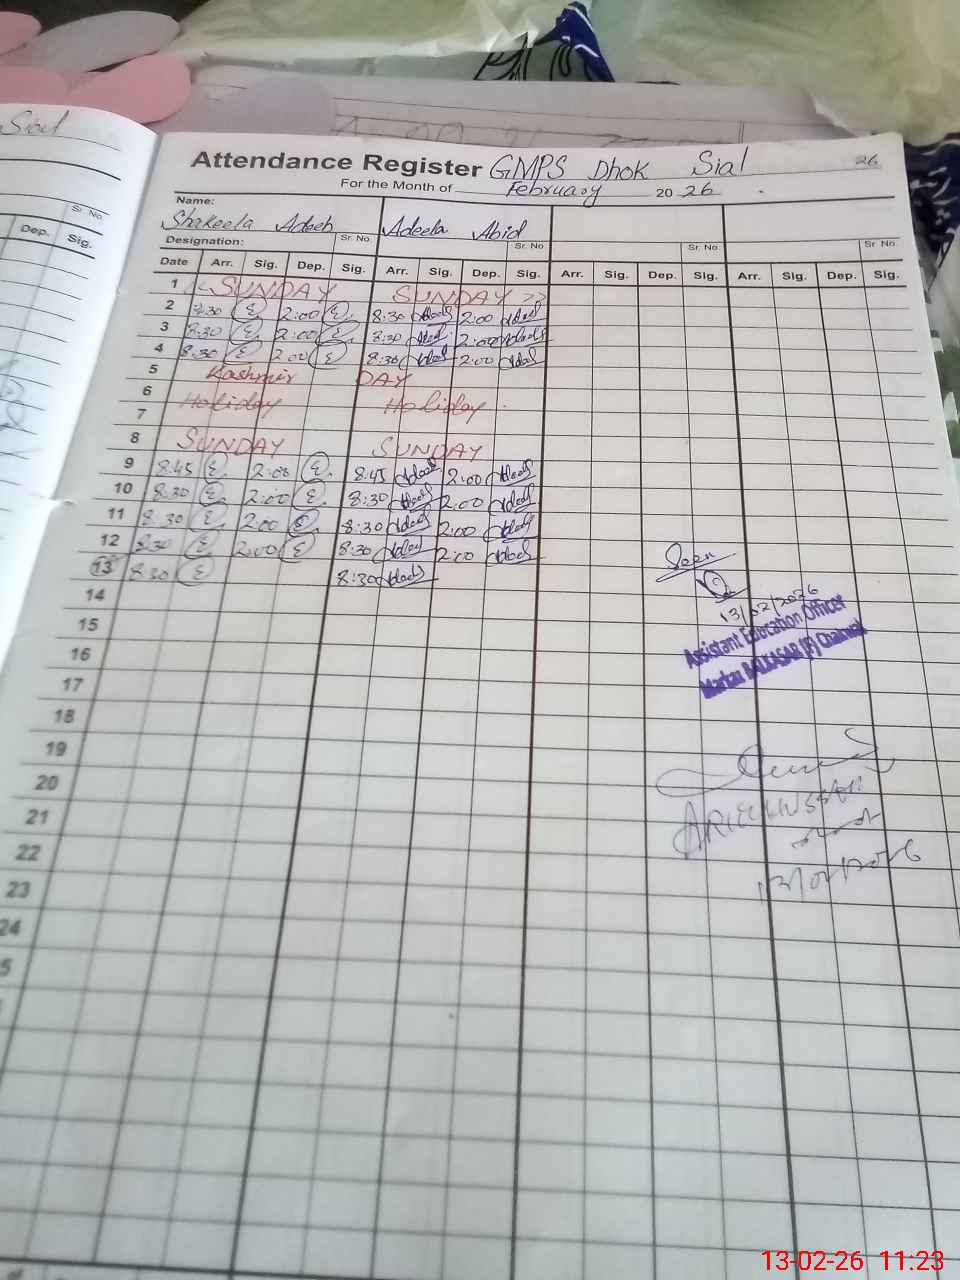 Sial
Sr. No.
Dep. Sig.
Attendance Register GMPS Dhok Sial 26
For the Month of February 2026
Name:
Shakeela Adeeb Adeela Abid
Designation: Sr. No. Sr. No Sr. No. Sr. No.
Date Arr. Sig. Dep. Sig. Arr. Sig. Dep. Sig. Arr. Sig. Dep. Sig. Arr. Sig. Dep. Sig.
1 << SUNDAY SUNDAY >>
2 8:30 2:00 8:30 2:00
3 8:30 2:00 8:30 2:00
4 8:30 2:00 8:30 2:00
5 Kashmir DAY
6
7 Holiday Holiday
8 SUNDAY SUNDAY
9 8:45 2:00 8:45 2:00
10 8:30 2:00 8:30 2:00
11 8:30 2:00 8:30 2:00
12 8:30 2:00 8:30 2:00
13 8:30 8:30
14
15
16
17
18
19
20
21
22
23
24
5
Seen
13/02/2026
Assistant Education Officer
Markaz BALKASAR (F) Chakwal
13-02-26 11:23